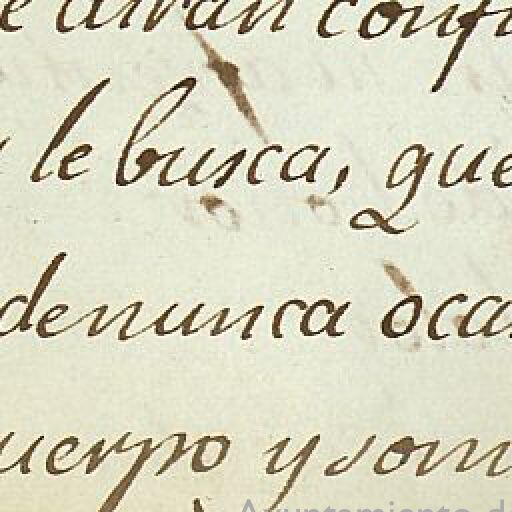 e diran conf
le busca, que
denunca òca
uerpo y som
Ayuntamiento d